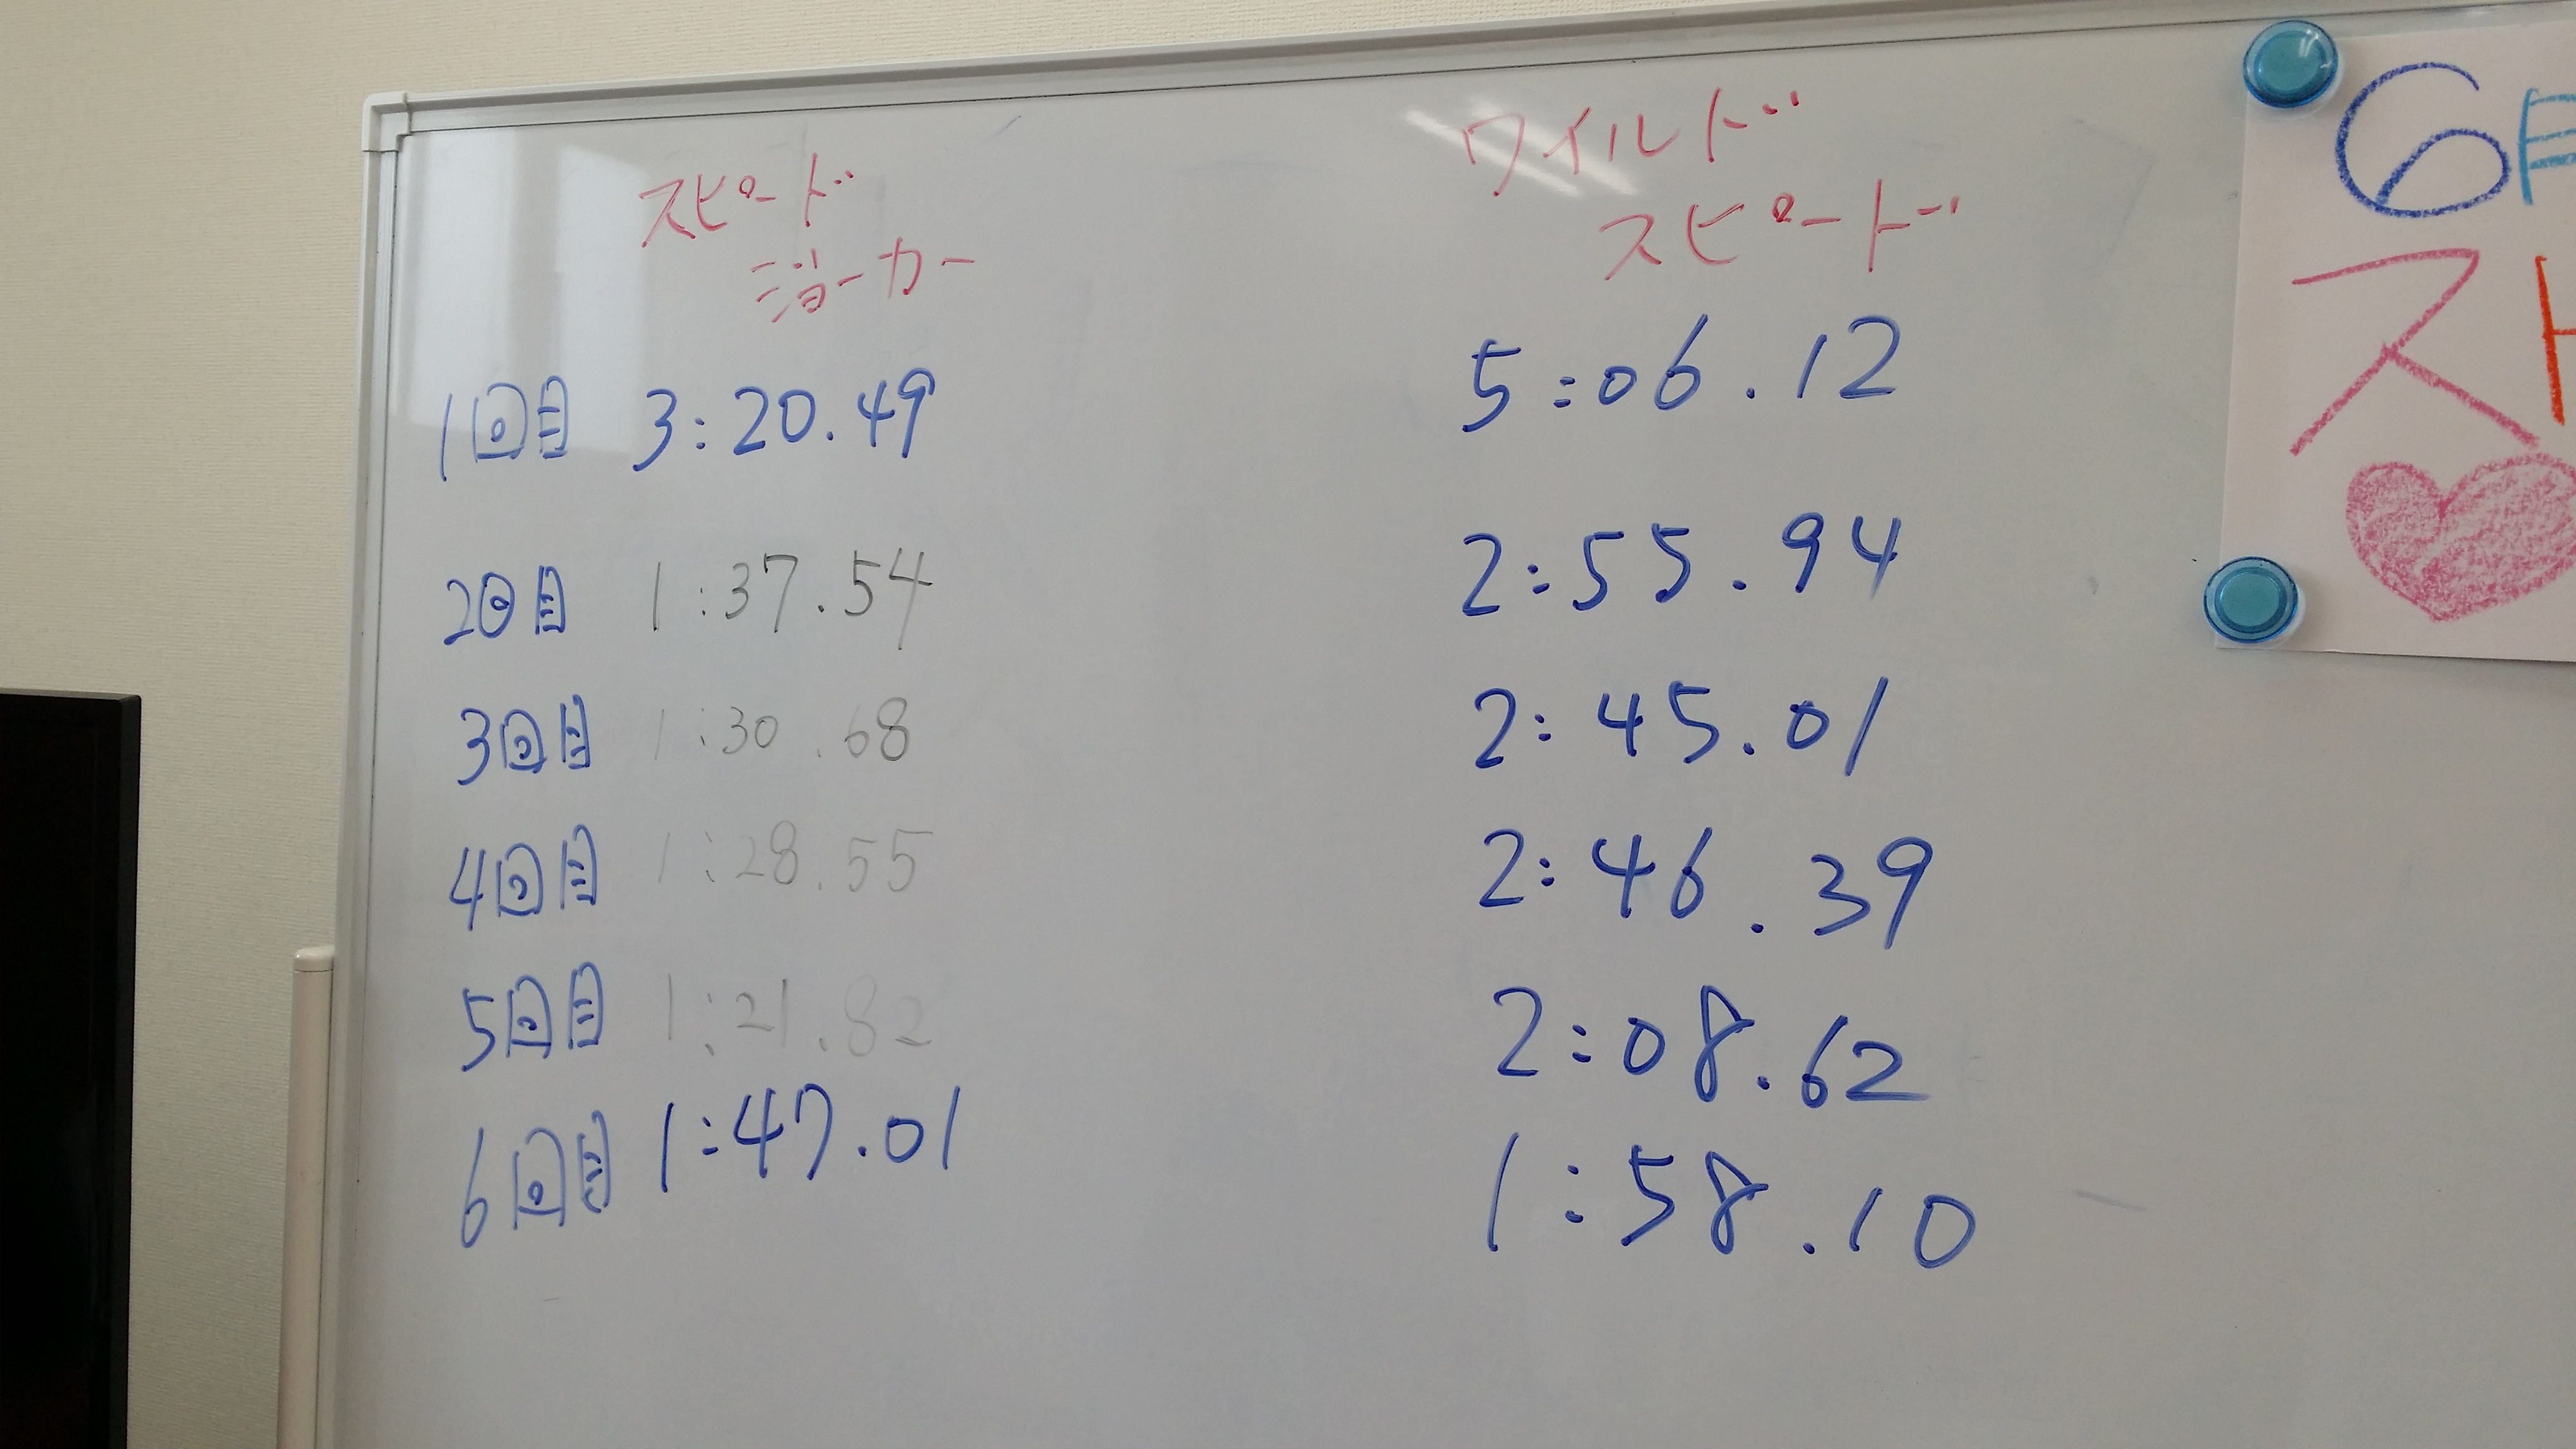 スピード
ジョーカー
ワイルド
スピード
1回目 3:20.49 5:06.12
2回目 1:37.54 2:55.94
3回目 1:30.68 2:45.01
4回目 1:28.55 2:46.39
5回目 1:21.82 2:08.62
6回目 1:47.01 1:58.10
6月
ス